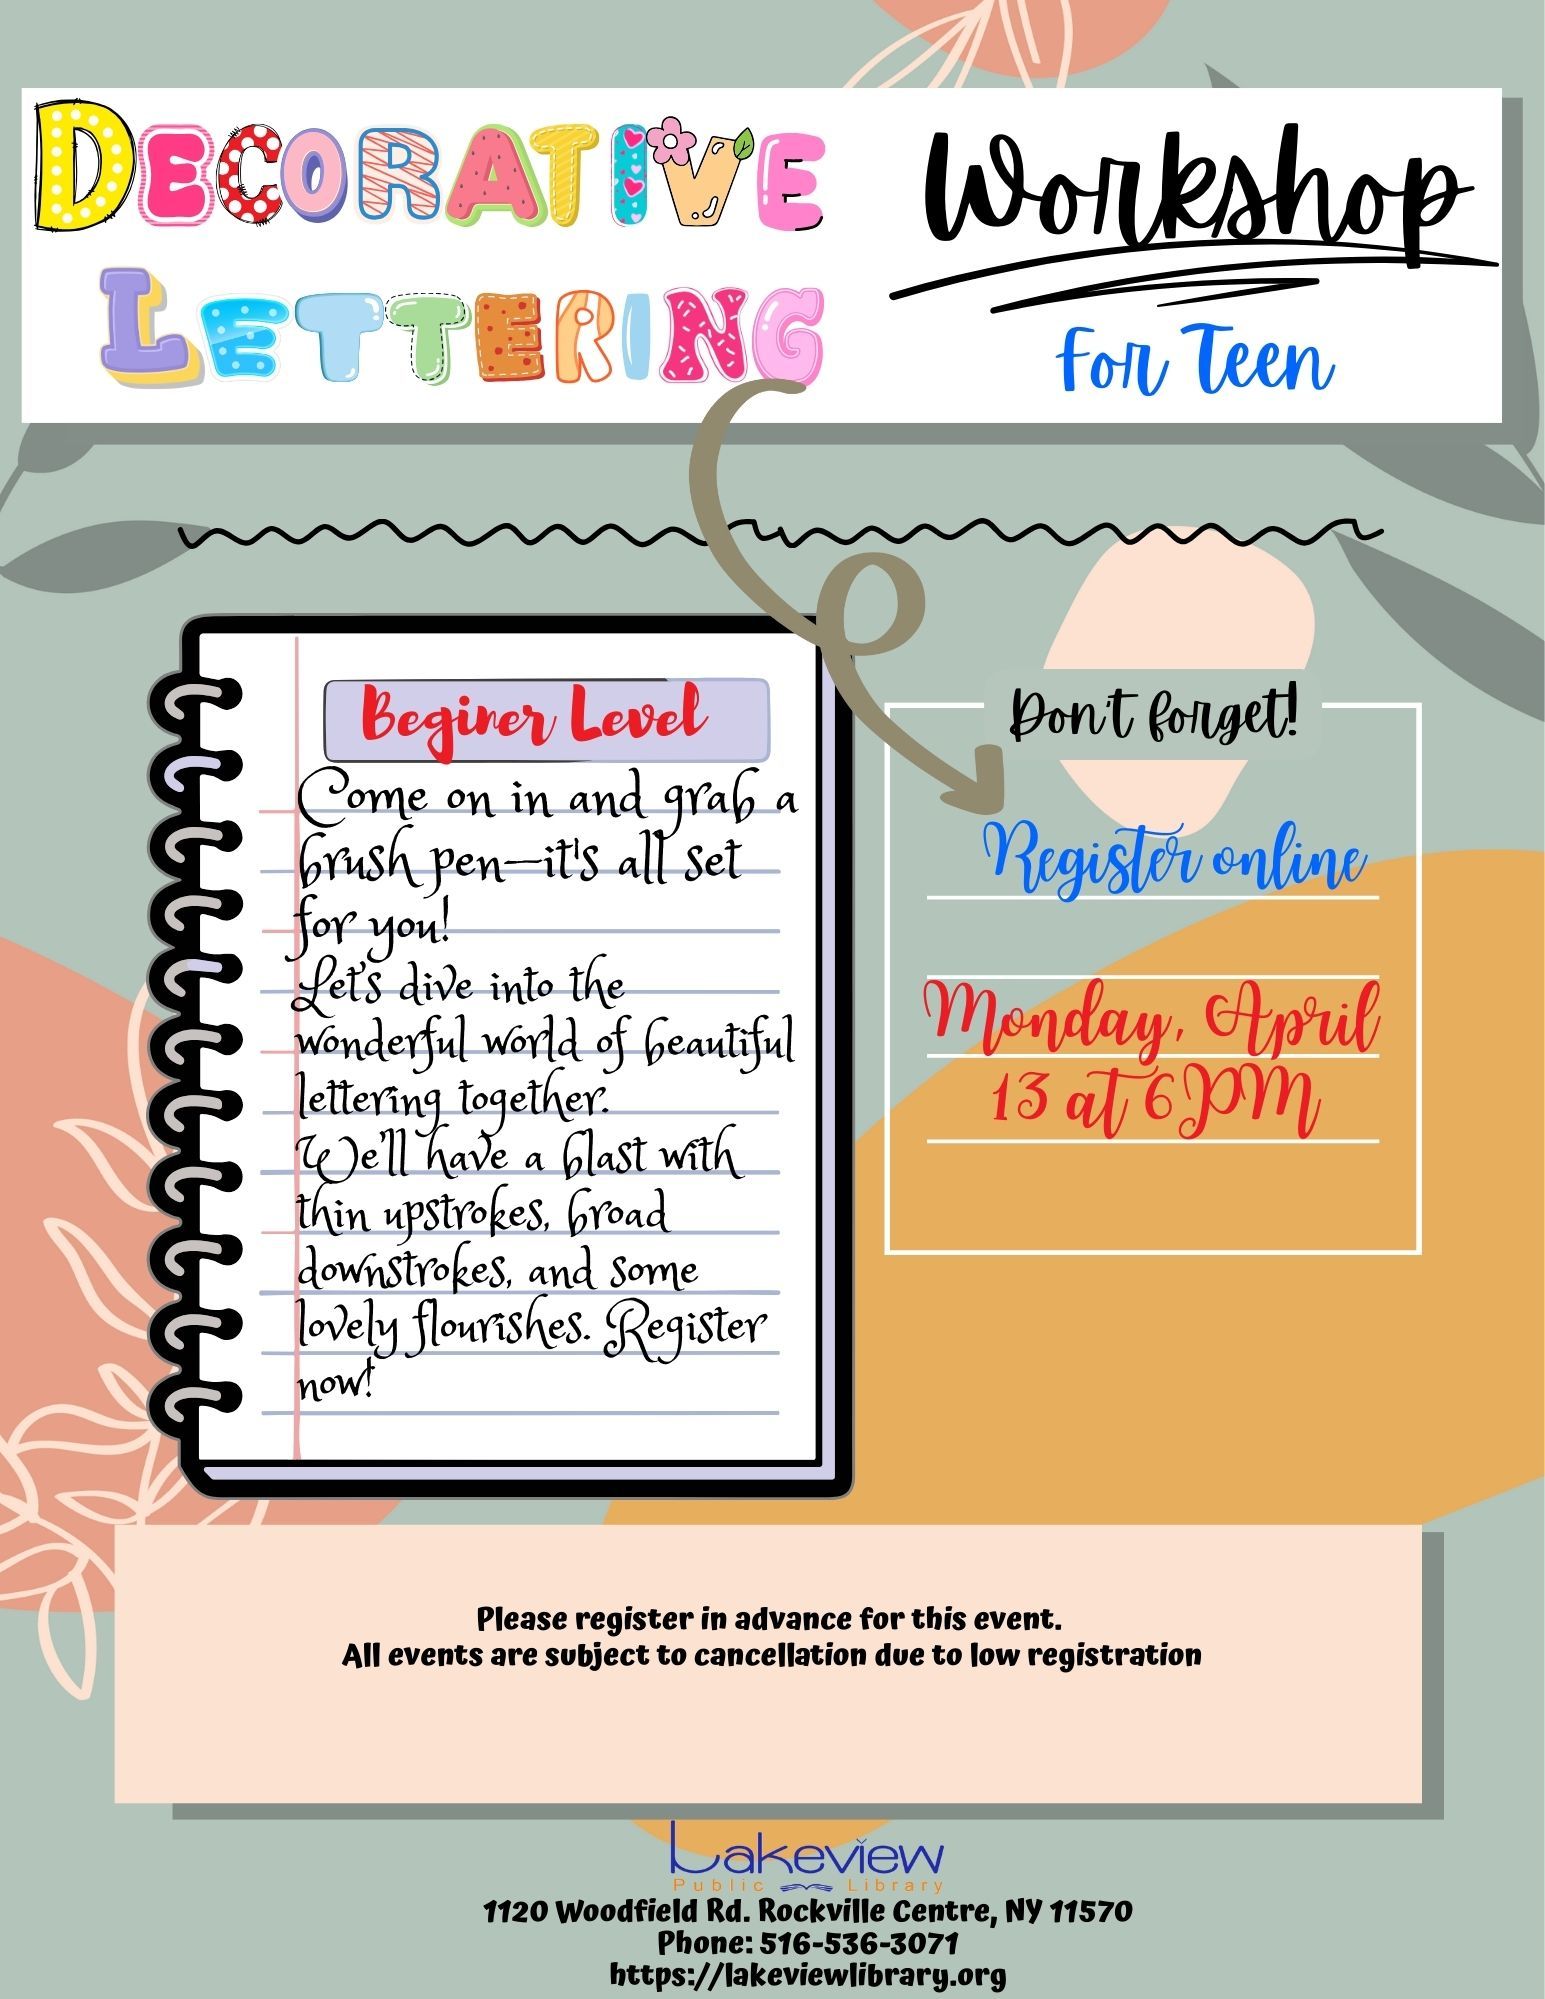 DECORATIVE
LETTERING
Workshop
For Teen
Beginer Level
Come on in and grab a
brush pen—it's all set
for you!
Let's dive into the
wonderful world of beautiful
lettering together.
We'll have a blast with
thin upstrokes, broad
downstrokes, and some
lovely flourishes. Register
now!
Don't forget!
Register online
Monday, April
13 at 6PM
Please register in advance for this event.
All events are subject to cancellation due to low registration
Lakeview
Public Library
1120 Woodfield Rd. Rockville Centre, NY 11570
Phone: 516-536-3071
https://lakeviewlibrary.org